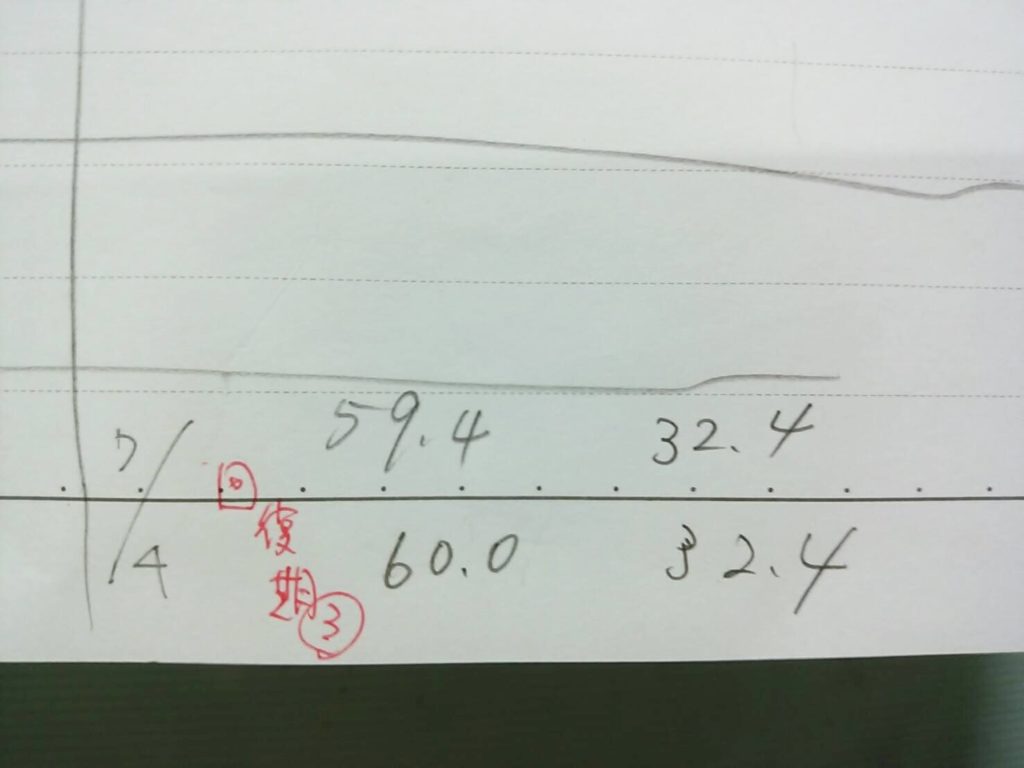 7/4
59.4 32.4
回復期③
60.0 32.4